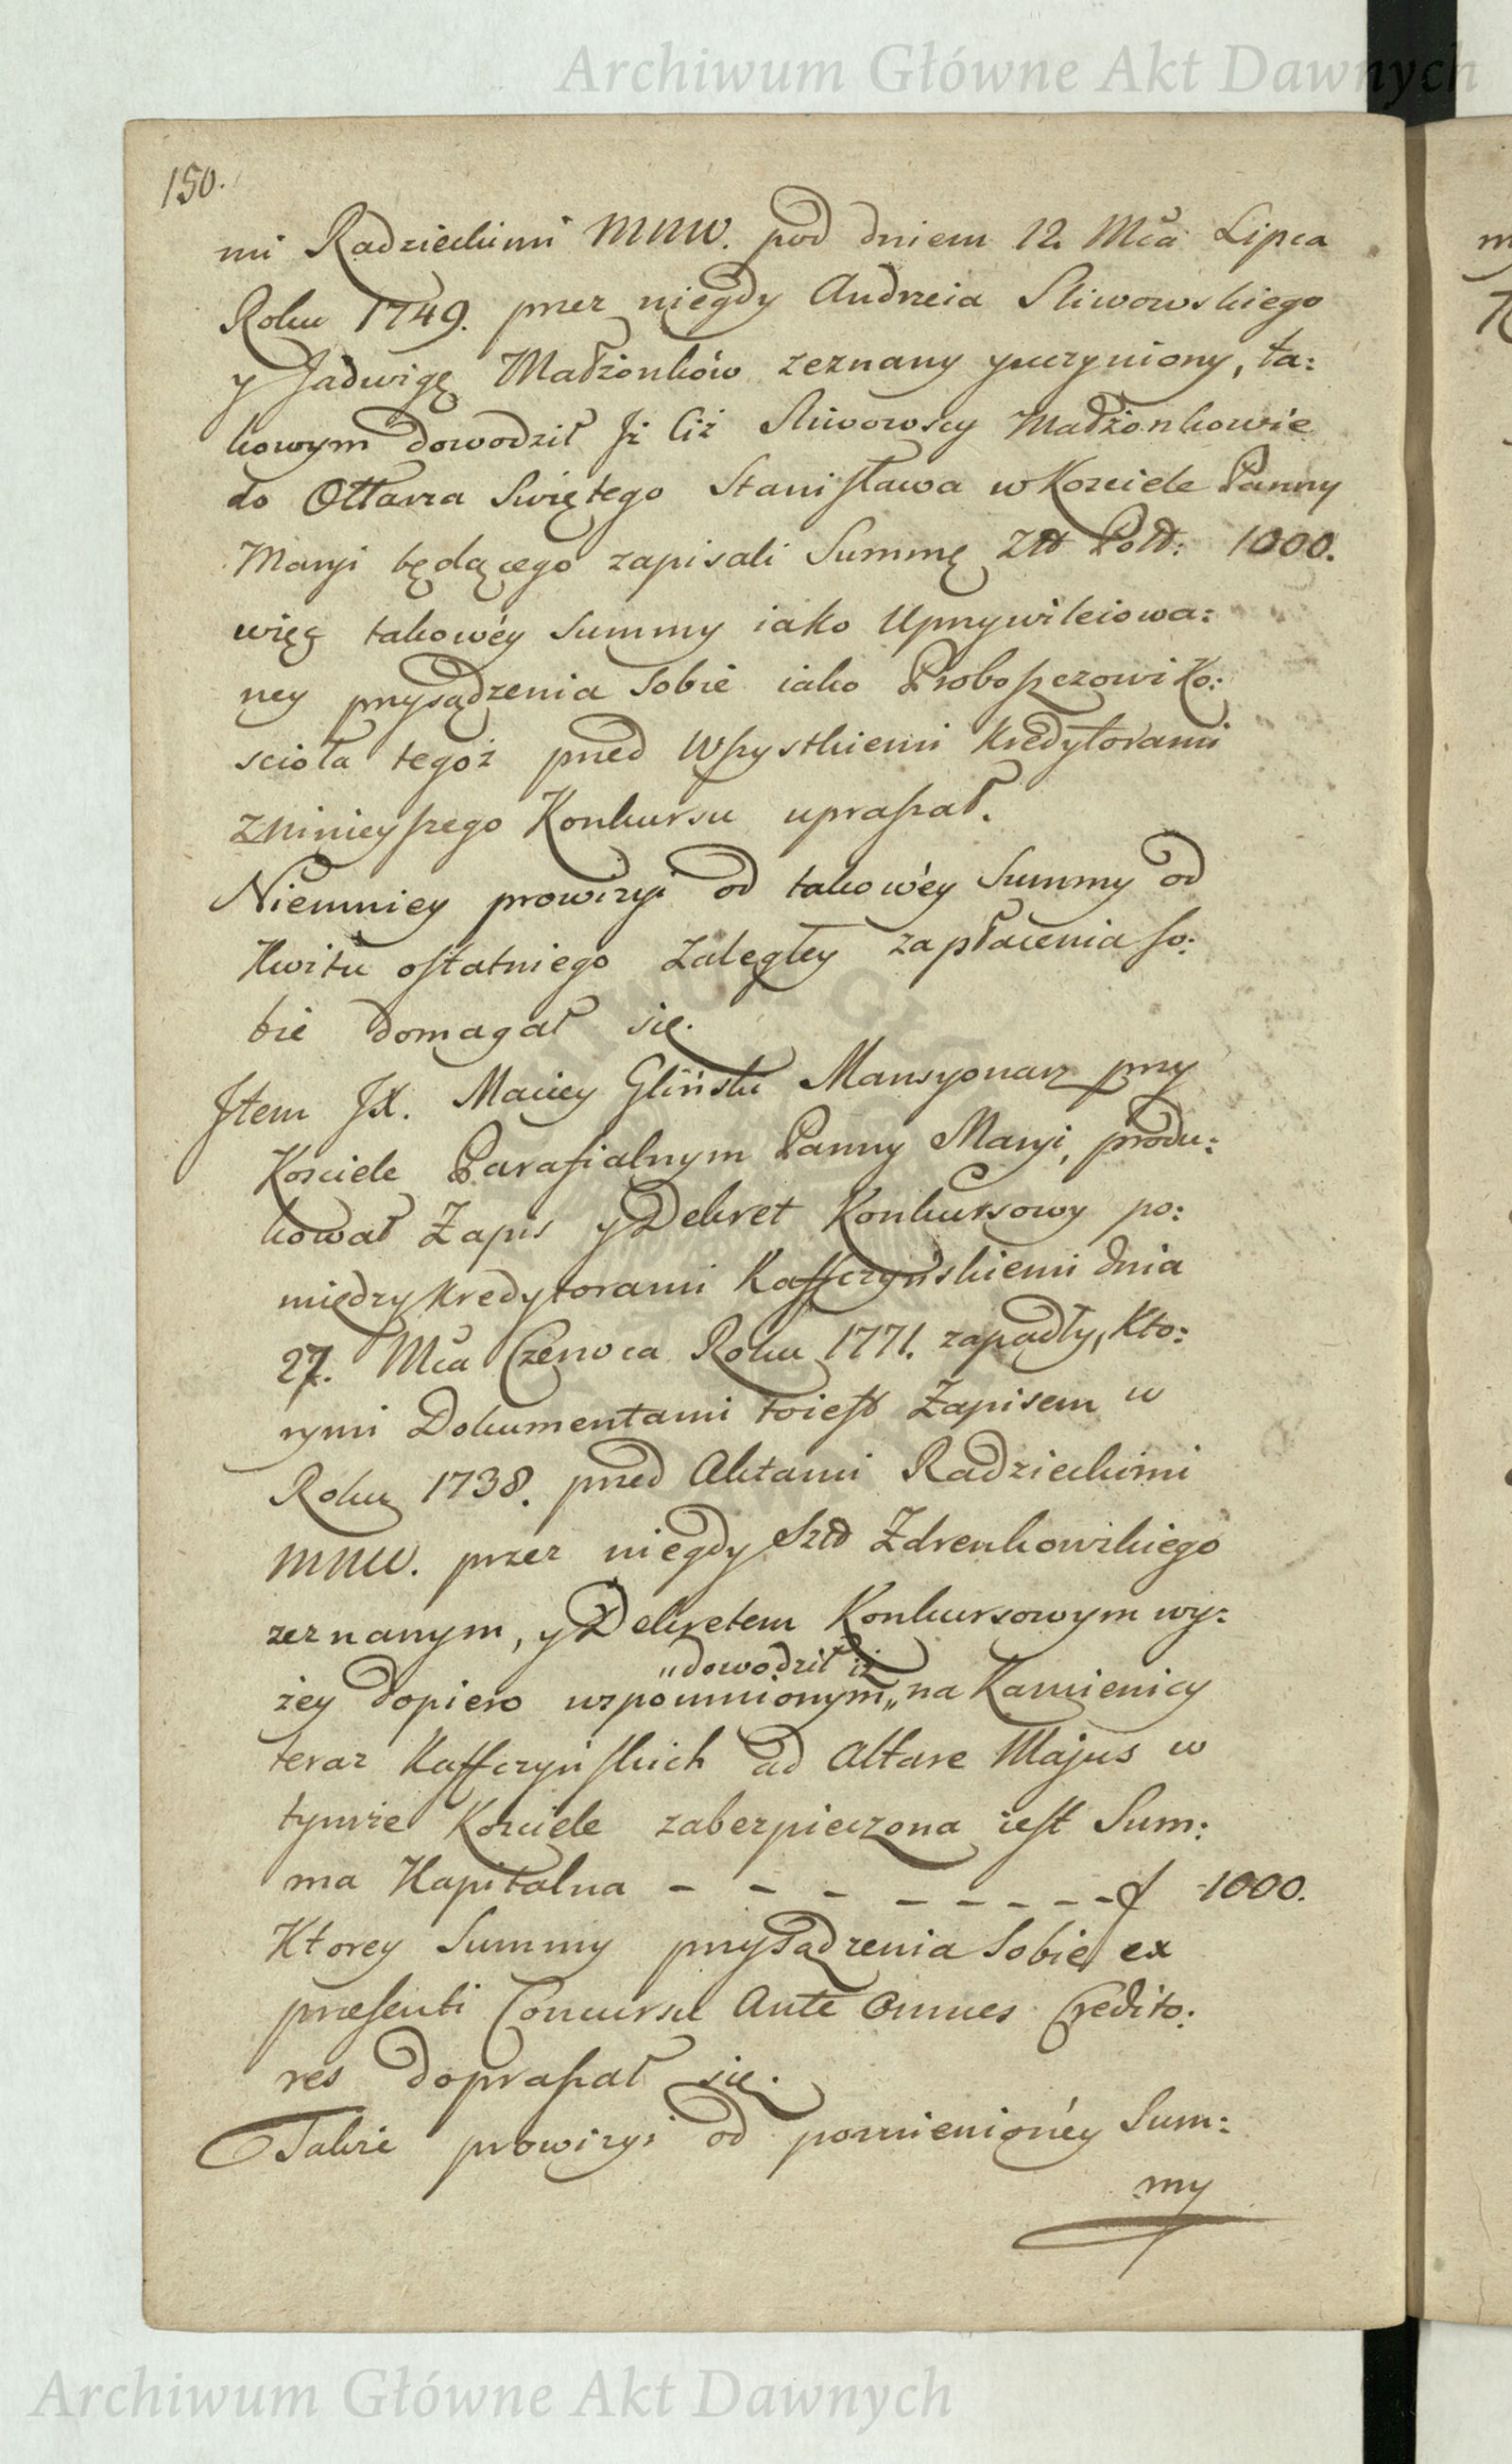 Archiwum Główne Akt Dawnych
150.
mi Radzieckimi MNW. pod dniem 12. Mca Lipca
Roku 1749. przez niegdy Andrzeia Sliwowskiego
y Jadwigę Małżonków zeznany yuczyniony, ta:
kowym dowodził Jż Ciż Sliwowscy Małżonkowie
do Ołtarza Swiętego Stanisława w Kosciele Panny
Maryi będącego zapisali Summę Złł Poll: 1000.
więę takowéy Summy iako Uprzywileiowa:
ney przysądzenia Sobie iako Proboszczowi Ko:
scioła tegoż przed Wszystkiemi Kredytorami
z ninieyszego Konkursu upraszał.
Niemniey prowizyi od takowéy Summy od
Kwitu ostatniego zaległey zapłacenia so:
bie domagał się.
Jtem JX. Maciey Gliński Mansyonarz przy
Kosciele Parafialnym Panny Maryi, produ:
kował Zapis y Dekret Konkursowy po:
między Kredytorami Kaffczyńskiemi dnia
27. Mca Czerwca Roku 1771. zapadły, Kto:
rymi Dokumentami toiest Zapisem w
Roku 1738. przed Aktami Radzieckimi
MNW. przez niegdy Szld Zdrenkowskiego
zeznanym, y Dekretem Konkursowym wy:
„dowodził iż
żey dopiero wzpomnionym„ na Kamienicy
teraz Kaffczyńskich ad Altare Majus w
tymże Kosciele zabezpieczona iest Sum:
ma Kapitalna - - - - - - - - f 1000.
Ktorey Summy przysądzenia Sobie ex
præsenti Concursu Ante Omnes Credito:
res dopraszał się.
Także prowizyi od pomienionéy Sum:
my
Archiwum Główne Akt Dawnych